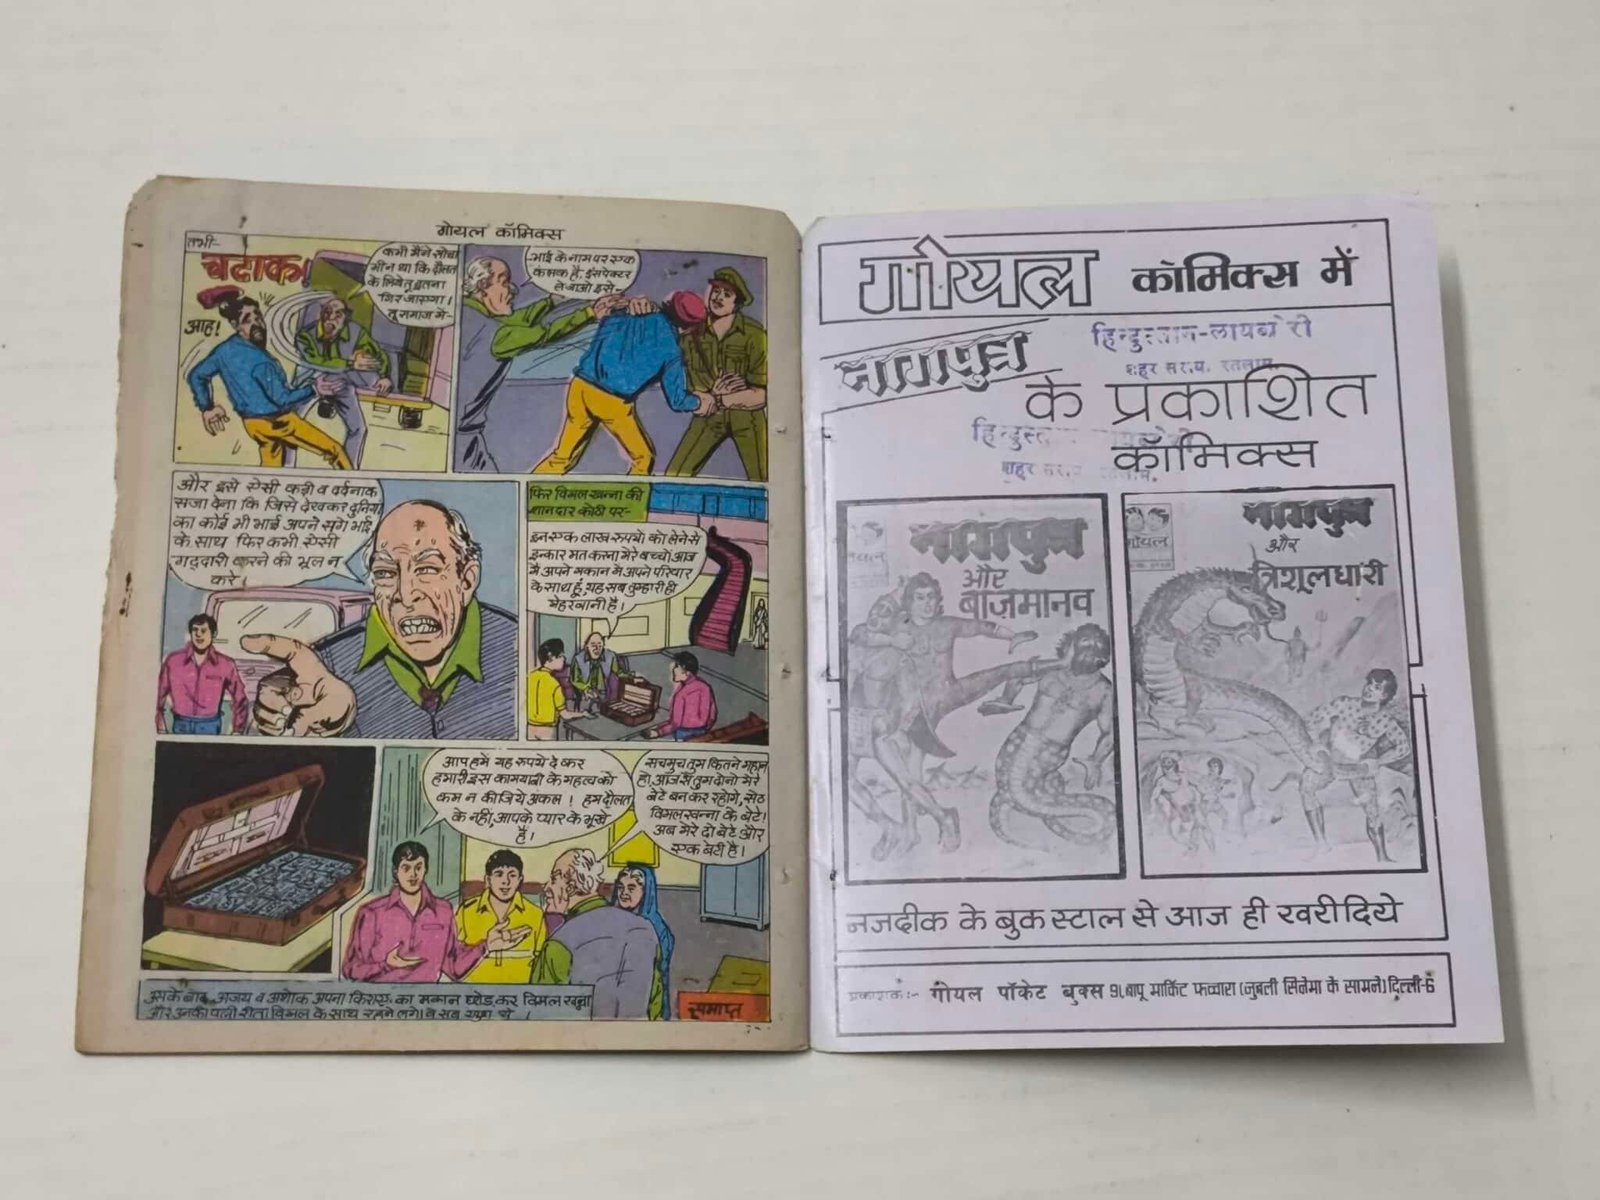 गोयल कॉमिक्स
तभी-
चटाक!
आह!
कभी मैंने सोचा
भी न था कि दौलत
के लिये तू इतना
गिर जाएगा।
तू समाज में-
भाई के नाम पर एक
कलंक है, इंसपेक्टर
ले जाओ इसे-
और इसे ऐसी कड़ी व दर्दनाक
सजा देना कि जिसे देखकर दुनिया
का कोई भी भाई अपने सगे भाई
के साथ फिर कभी ऐसी
गद्दारी करने की भूल न
करे।
फिर विमल खन्ना की
शानदार कोठी पर-
इन एक लाख रुपयों को लेने से
इन्कार मत करना मेरे बच्चो, आज
मैं अपने मकान में अपने परिवार
के साथ हूं, यह सब तुम्हारी ही
मेहरबानी है।
आप हमें यह रुपये दे कर
हमारी इस कामयाबी के महत्व को
कम न कीजिये अंकल! हम दौलत
के नहीं, आपके प्यार के भूखे
हैं।
सचमुच तुम कितने महान
हो, आज से तुम दोनों मेरे
बेटे बन कर रहोगे, सेठ
विमल खन्ना के बेटे!
अब मेरे दो बेटे और
एक बेटी है।
उसके बाद अजय व अशोक अपना किराए का मकान छोड़ कर विमल खन्ना
और उनकी पत्नी रीता विमल के साथ रहने लगे। वे सब खुश थे।
समाप्त
गोयल कॉमिक्स में
नागपुत्र
हिन्दुस्तान-लायब्रेरी
शहर सराय, रतलाम.
के प्रकाशित
कॉमिक्स
नागपुत्र
और
बाज़मानव
गोयल
नागपुत्र
और
त्रिशूलधारी
नजदीक के बुक स्टाल से आज ही खरीदिये
प्रकाशक:- गोयल पॉकेट बुक्स 91, बापू मार्किट फव्वारा (जुबली सिनेमा के सामने) दिल्ली-6